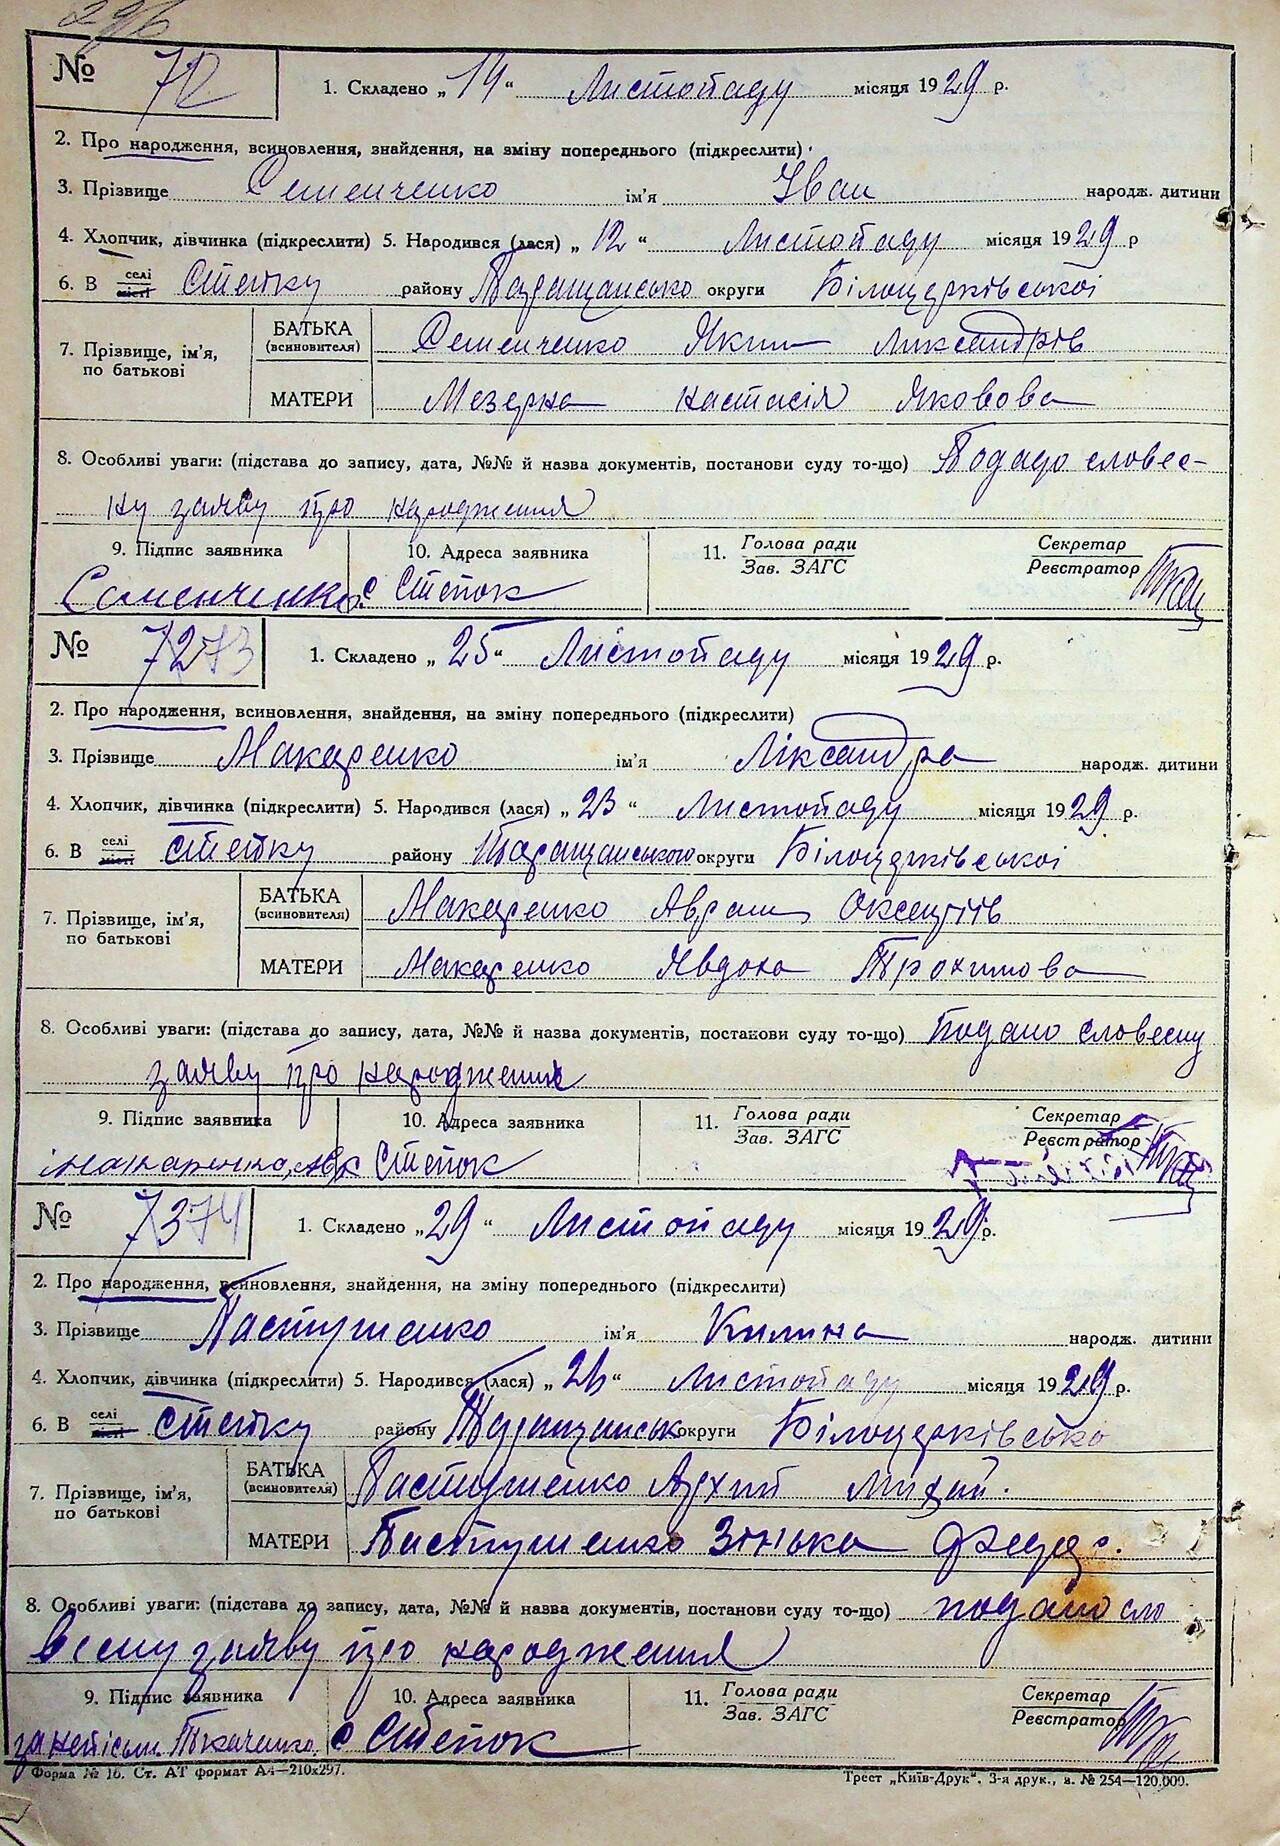 296
№ 72 1. Складено „14“ Листопаду місяця 1929 р.
2. Про народження, всиновлення, знайдення, на зміну попереднього (підкреслити)
3. Прізвище Семенченко ім'я Іван народж. дитини
4. Хлопчик, дівчинка (підкреслити) 5. Народився (лася) „12“ Листопаду місяця 1929 р
6. В селі місті Степку району Таращансько округи Білоцерківської
7. Прізвище, ім'я, по батькові
БАТЬКА (всиновителя) Семенченко Яким Ликсандрів
МАТЕРИ Мазерна Настасія Яковова
8. Особливі уваги: (підстава до запису, дата, №№ й назва документів, постанови суду то-що) Подано словес-
ну заяву про народження
9. Підпис заявника 10. Адреса заявника 11. Голова ради Зав. ЗАГС Секретар Реєстратор
Семенченко с Степок Ткач
№ 72 73 1. Складено „25“ Листопаду місяця 1929 р.
2. Про народження, всиновлення, знайдення, на зміну попереднього (підкреслити)
3. Прізвище Макаренко ім'я Ліксандра народж. дитини
4. Хлопчик, дівчинка (підкреслити) 5. Народився (лася) „23“ Листопаду місяця 1929 р.
6. В селі місті Степку району Таращанського округи Білоцерківської
7. Прізвище, ім'я, по батькові
БАТЬКА (всиновителя) Макаренко Аврам Оксентів
МАТЕРИ Макаренко Явдоха Трохимова
8. Особливі уваги: (підстава до запису, дата, №№ й назва документів, постанови суду то-що) Подано словесну
заяву про народження
9. Підпис заявника 10. Адреса заявника 11. Голова ради Зав. ЗАГС Секретар Реєстратор
Макаренко, Ав с Степок Ткач
№ 73 74 1. Складено „29“ Листопаду місяця 1929 р.
2. Про народження, всиновлення, знайдення, на зміну попереднього (підкреслити)
3. Прізвище Пастушенко ім'я Килина народж. дитини
4. Хлопчик, дівчинка (підкреслити) 5. Народився (лася) „26“ Листопаду місяця 1929 р.
6. В селі місті Степку району Таращанськ округи Білоцерківсько
7. Прізвище, ім'я, по батькові
БАТЬКА (всиновителя) Пастушенко Архип
МАТЕРИ Пастушенко Зінька Федор.
8. Особливі уваги: (підстава до запису, дата, №№ й назва документів, постанови суду то-що) подано сло
весну заяву про народження
9. Підпис заявника 10. Адреса заявника 11. Голова ради Зав. ЗАГС Секретар Реєстратор
за неписьм. Ткаченко с Степок Ткач
Форма № 16. Ст. АТ формат А4—210х297. Трест „Київ-Друк“, 3-я друк., з. № 254—120.000.